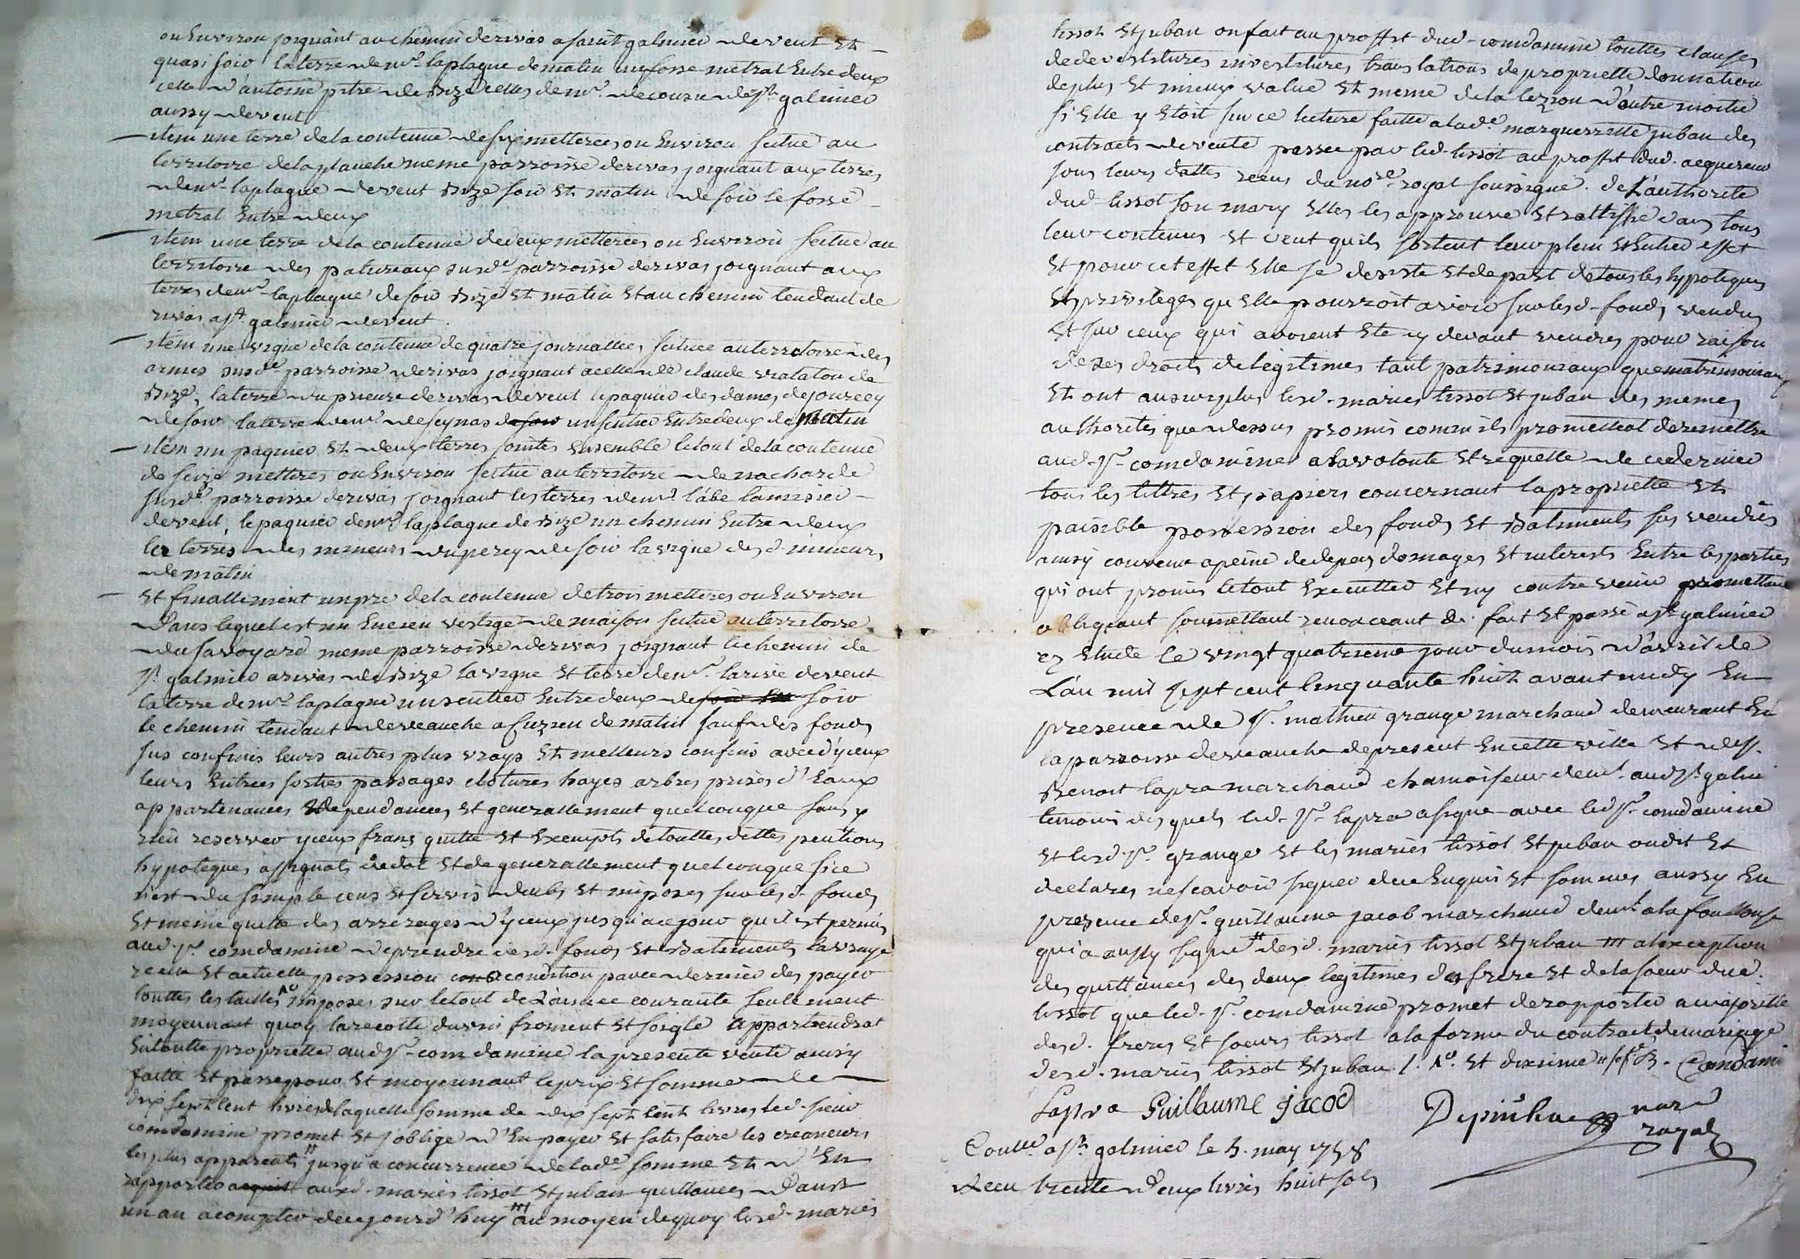 ou Environ joignant au chemin de rivas a saint galmier de vent Et
quasi soir la terre de mr. laplagne de matin un fosse metral Entre deux
celle d'antoine pitre de bize celles de mr. de st. galmier
aussy de vent
item une terre de la contenue de six metterees ou Environ scitue au
territoire de la planche meme parroisse de rivas joignant aux terres
de mr. laplagne de vent bize soir Et matin de soir le fossé
metral Entre deux
item une terre de la contenue de deux metterees ou Environ scitue au
territoire des patureaux susde. parroisse de rivas joignant aux
terres de mr. laplagne de soir bize Et matin Et au chemin tendant de
rivas a st. galmier de vent
item une vigne de la contenue de quatre journallees scituee au territoire des
armes susde. parroisse de rivas joignant a celle de claude vialaton de
bize, la terre du prieure de rivas de vent le paquier des dames de jourcey
de soir la terre de mr. de seynas de soir un sentier Entre deux de matin
item un paquier Et deux terres jointes Ensemble le tout de la contenue
de seize metterees ou Environ scitue au territoire de nacharde
susde. parroisse de rivas joignant les terres de mr. l'abé
de vent, le paquier de mr. laplagne de bize un chemin Entre deux
les terres des mineurs duperey de soir la vigne desd. mineurs
de matin
Et finallement un pre de la contenue de trois metterees ou Environ
dans lequel est un Encien vestige de maison scitue au territoire
du savoyard meme parroisse de rivas joignant le chemin de
st. galmier a rivas de bize la vigne Et terre de mr. larive de vent
la terre de mr. laplagne un sentier Entre deux de soir
le chemin tendant de veauche a Cuzieu de matin sauf des fonds
sus confinés leurs autres plus vrays Et meilleurs confins avec d'yceux
leurs Entrees sorties passages clotures hayes arbres prises d'Eaux
appartenances dependances Et generallement quelconque sans y
rien reserver yceux francs quitte Et Exempts de touttes dettes pentions
hypoteques assignats de dot Et de generallement quelconque si ce
n'est du simple cens Et servis deubs Et imposes sur lesd. fonds
Et meme quitte des arrerages d'yceux jusqu'a ce jour qu'il est permis
aud. sr. comdamine de prendre desd. fonds Et batiments la vraye
reelle Et actuelle possession condition par ce dernier de payer
touttes les tailles imposes sur le tout de L'année courante seulement
moyennant quoy la recolte du vin froment Et soigle appartiendrat
En toutte propriette aud. sr. comdamine la presente vente ainsy
faitte Et passe pour Et moyennant le prix Et somme de
dix sept cent livres laquelle somme de dix sept cent livres led. sieur
comdamine promet Et s'oblige d'En payer Et satisfaire les creanciers
les plus apparents jusqu'a concurrence de lade. somme Et d'En
rapporter auxd. mariés tissot Et juban quittances dans
un an a compter de cejourd'huy au moyen de quoy lesd. mariés
tissot Et juban on fait au proffit dud. comdamine touttes clauses
de devestitures investitures translations de propriette donnation
de plus Et mieux value Et meme de la lezion d'outre moitié
si Elle y Etoit sur ce lecture faitte a lade. marguerritte juban des
contracts de vente passee par led. tissot au proffit dud. acquereur
sous leurs dattes receus du nore. royal soussigné. de L'authorite
dud. tissot son mary Elles les approuve Et rattiffie dans tous
leur contenus Et veut quils sortent leur plein Et Entier effet
Et pour cet effet Elle se desiste Et depart de tous les hypoteques
Et privileges qu'Elle pourroit avoir sur lesd. fonds vendus
Et sur ceux qui avoient Ete cy devant vendus pour raison
de ses droits de legitimes tant patrimoniaux que matrimoniaux
Et ont au surplus lesd. mariés tissot Et juban des memes
authorités que dessus promis comm'ils promettent de remettre
aud. sr. comdamine a sa volonte Et requette de ce dernier
tous les tittres Et papiers concernant la propriette Et
paisible possession des fonds Et batiments sus vendus
ainsy convenu a peine de depens domages Et interests Entre les parties
qui ont promis le tout Executter Et ny contre venir promettant
obligeant soumettant renonceant &. fait Et passé a st. galmier
es Etude le vingt quatrieme jour du mois d'avril de
L'an mil sept cent cinquante huit avant midy En
presence de sr. mathieu grange marchand demeurant En
la parroisse de veauche de present En cette ville Et de sr.
Benoit lapra marchand chamoiseur demt. aud. st. galmier
temoins desquels led. sr. lapra a signe avec led. sr. comdamine
Et led. sr. grange Et les mariés tissot Et juban on dit Et
declares ne scavoir signer de ce Enquis Et sommes aussy En
presence de sr. guillaume jacob marchand demt. a la fouillouse
qui a aussy signé desd. mariés tissot Et juban a l'exception
des quittances des deux legitimes du frere Et de la soeur dud.
tissot que led. sr. comdamine promet de rapporter a majorité
desd. freres Et soeurs tissot a la forme du contract de mariage
desd. mariés tissot Et juban Condami
Lapra Guillaume jacod Depinhac nore
royal
Contle. a st. galmier le 5. may 1758
Receu trente deux livres huit sols